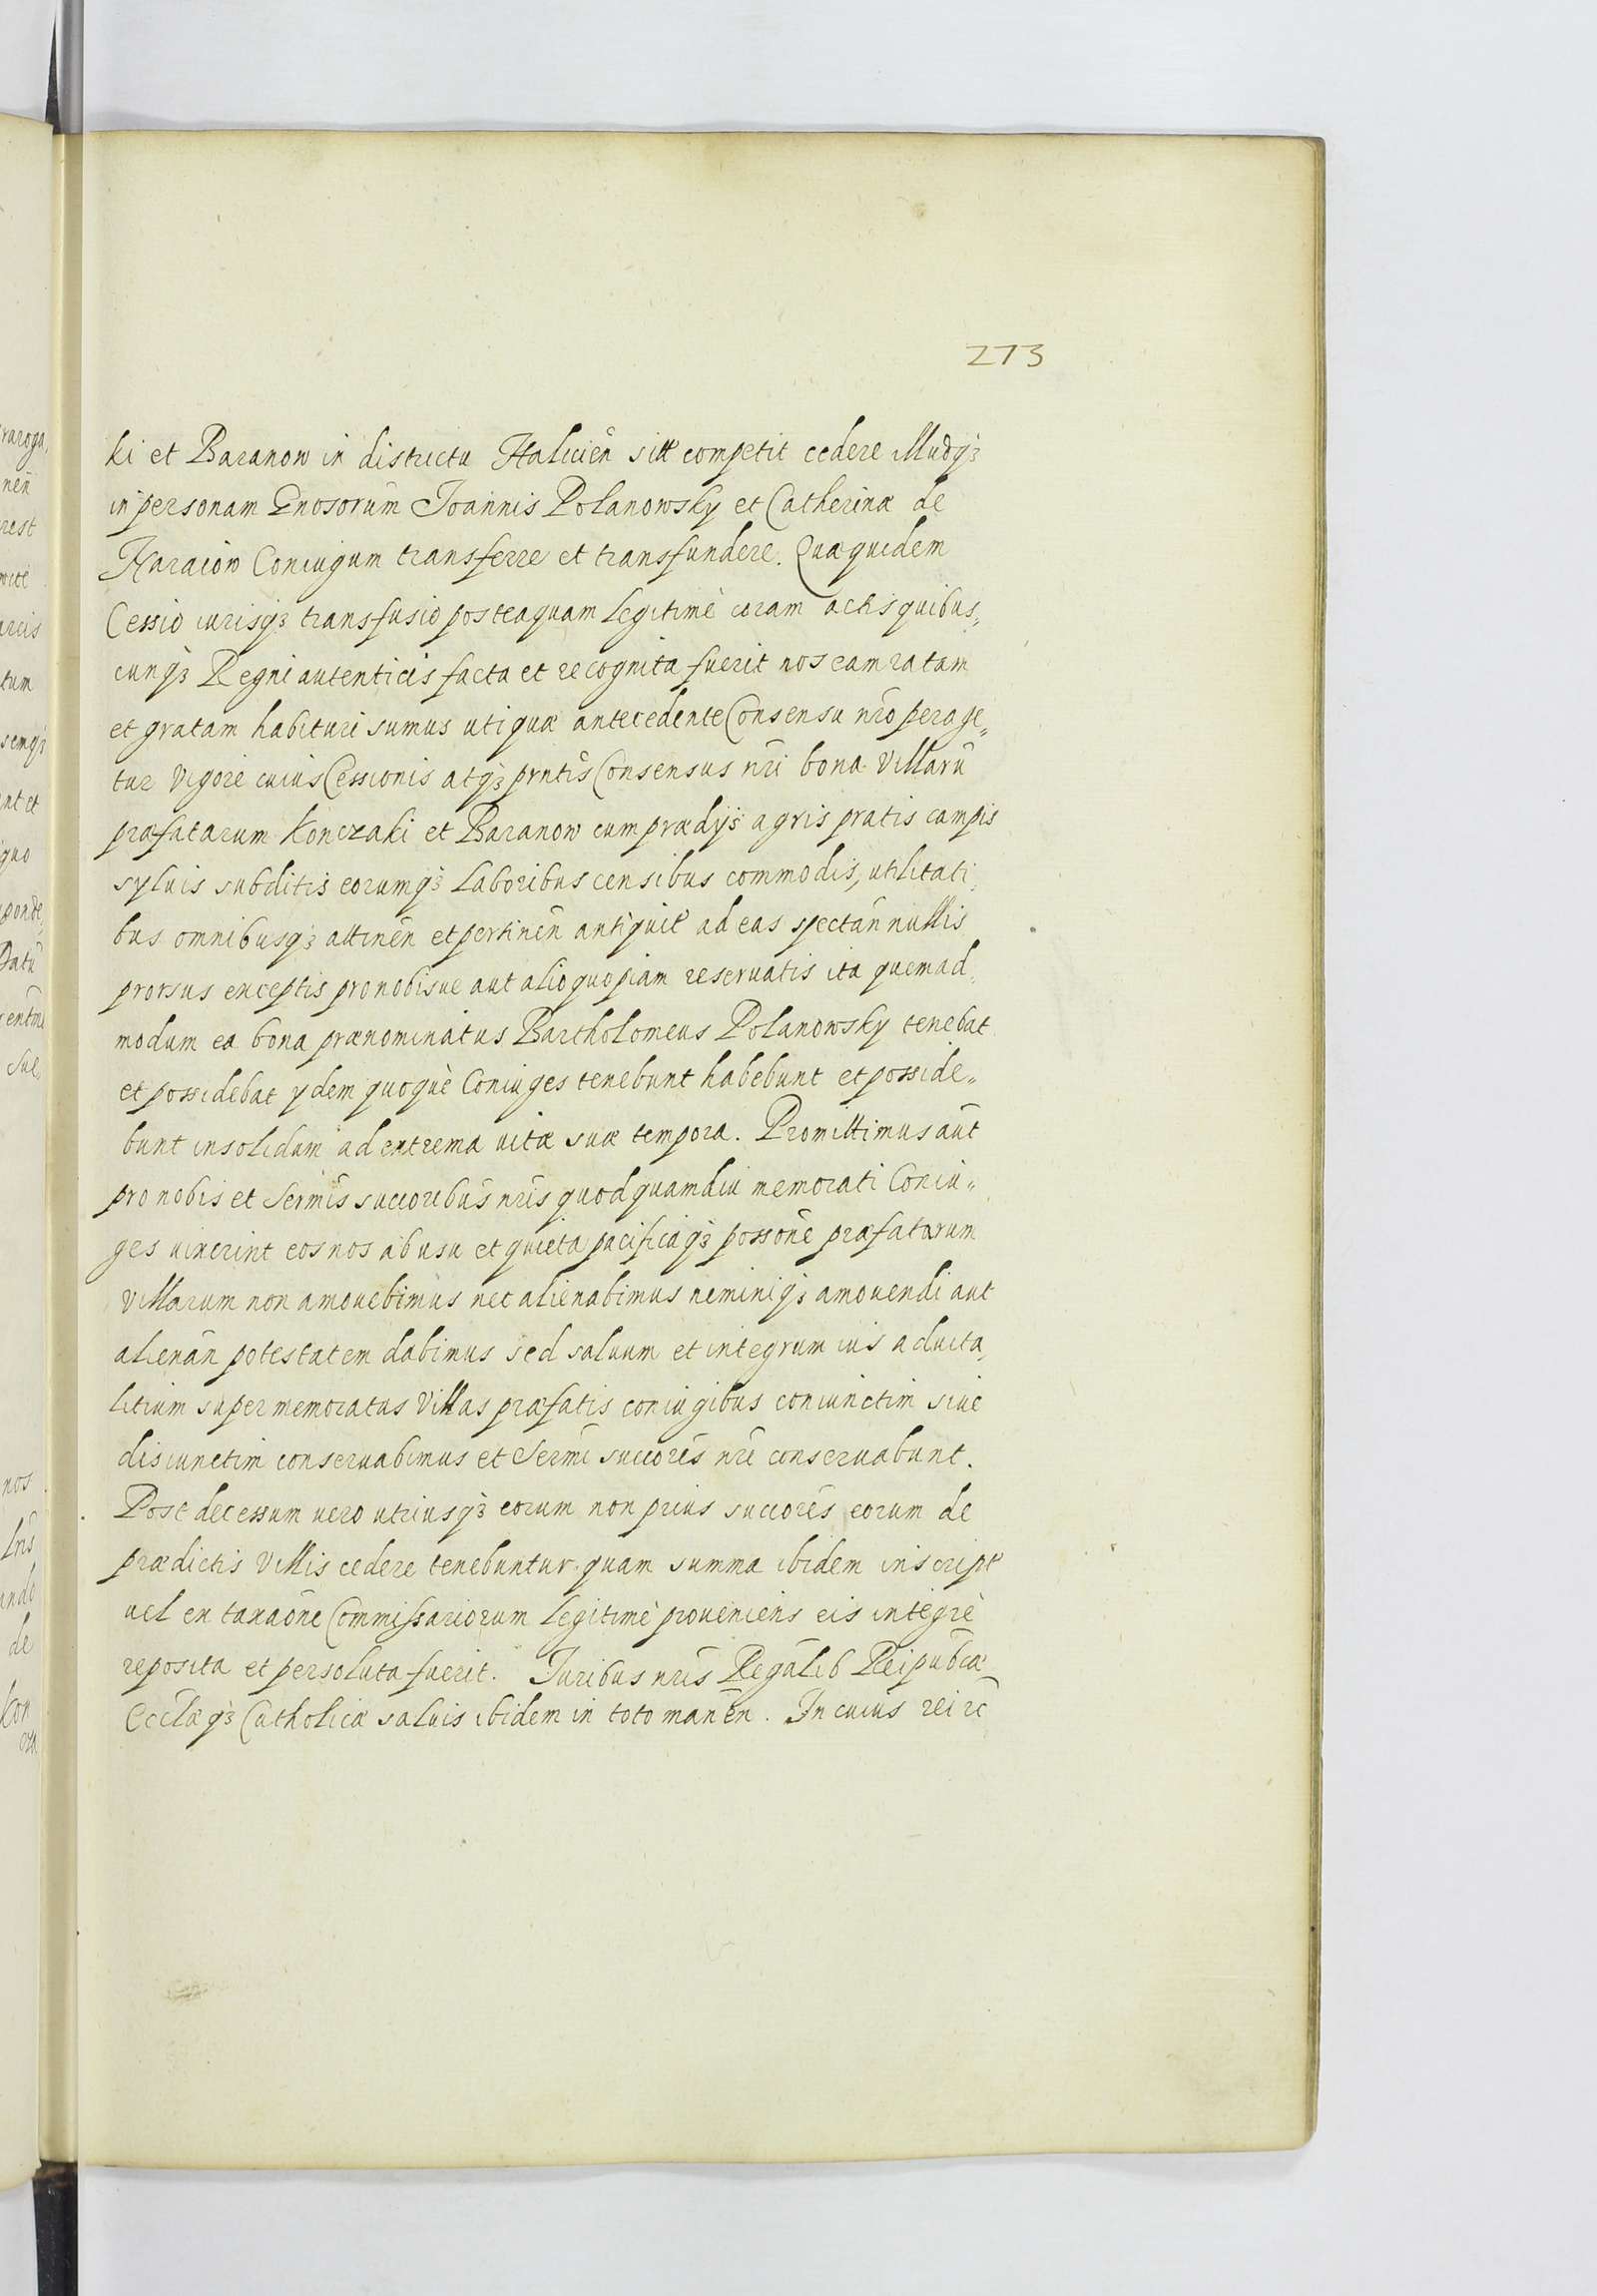 273
ki et Baranow in districtu Haliciēn sitt competit cedere illudq3
in personam Gnosorum Joannis Polanowsky et Catherinæ de
Haraiow Coniugum transferre et transfundere. Quæquidem
Cessio iurisq3 transfusio posteaquam legitimè coram actis quibus„
cunq3 Regni autenticis facta et recognita fuerit nos eam ratam
et gratam habituri sumus uti quæ antecedente Consensu nr̄o perage„
tur vigore cuius Cessionis atq3 prn̄tis Consensus nr̄i bona Villarū
præfatarum Konczaki et Baranow cum prædijs agris pratis campis
syluis subditis eorumq3 laboribus censibus commodis, utilitati„
bus omnibusq3 attinēn et pertinēn antiquit̄ ad eas spectān nullis
prorsus exceptis pro nobisue aut alio quopiam reseruatis ita quemad„
modum ea bona prænominatus Bartholomeus Polanowsky tenebat
et possidebat ydem quoquè Coniuges tenebunt habebunt et posside„
bunt insolidum ad extrema uitæ suæ tempora. Promittimus aūt
pro nobis et Serm̄is succoribus nr̄is quod quamdiu memorati Coniu„
ges uixerint eos nos ab usu et quieta pacificaq3 possōne præfatarum
Villarum non amouebimus nec alienabimus neminiq3 amouendi aut
alienān potestatem dabimus sed saluum et integrum ius aduita„
litium super memoratas Villas præfatis coniugibus coniunctim siue
disiunctim conseruabimus et Serm̄i succorēs nr̄i conseruabunt.
Post decessum uero utriusq3 eorum non prius succorēs eorum de
prædictis Villis cedere tenebuntur quam summa ibidem inscript̄
uel ex taxaōne Commissariorum legitimè proueniens eis integrè
reposita et persoluta fuerit. Iuribus nr̄is Regālib Reipub̄cæ
Eccl̄æq3 Catholicæ saluis ibidem in toto manēn. In cuius rei